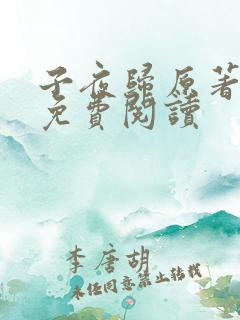 子夜歸原著
免費閱讀
李唐胡
未经同意禁止转载